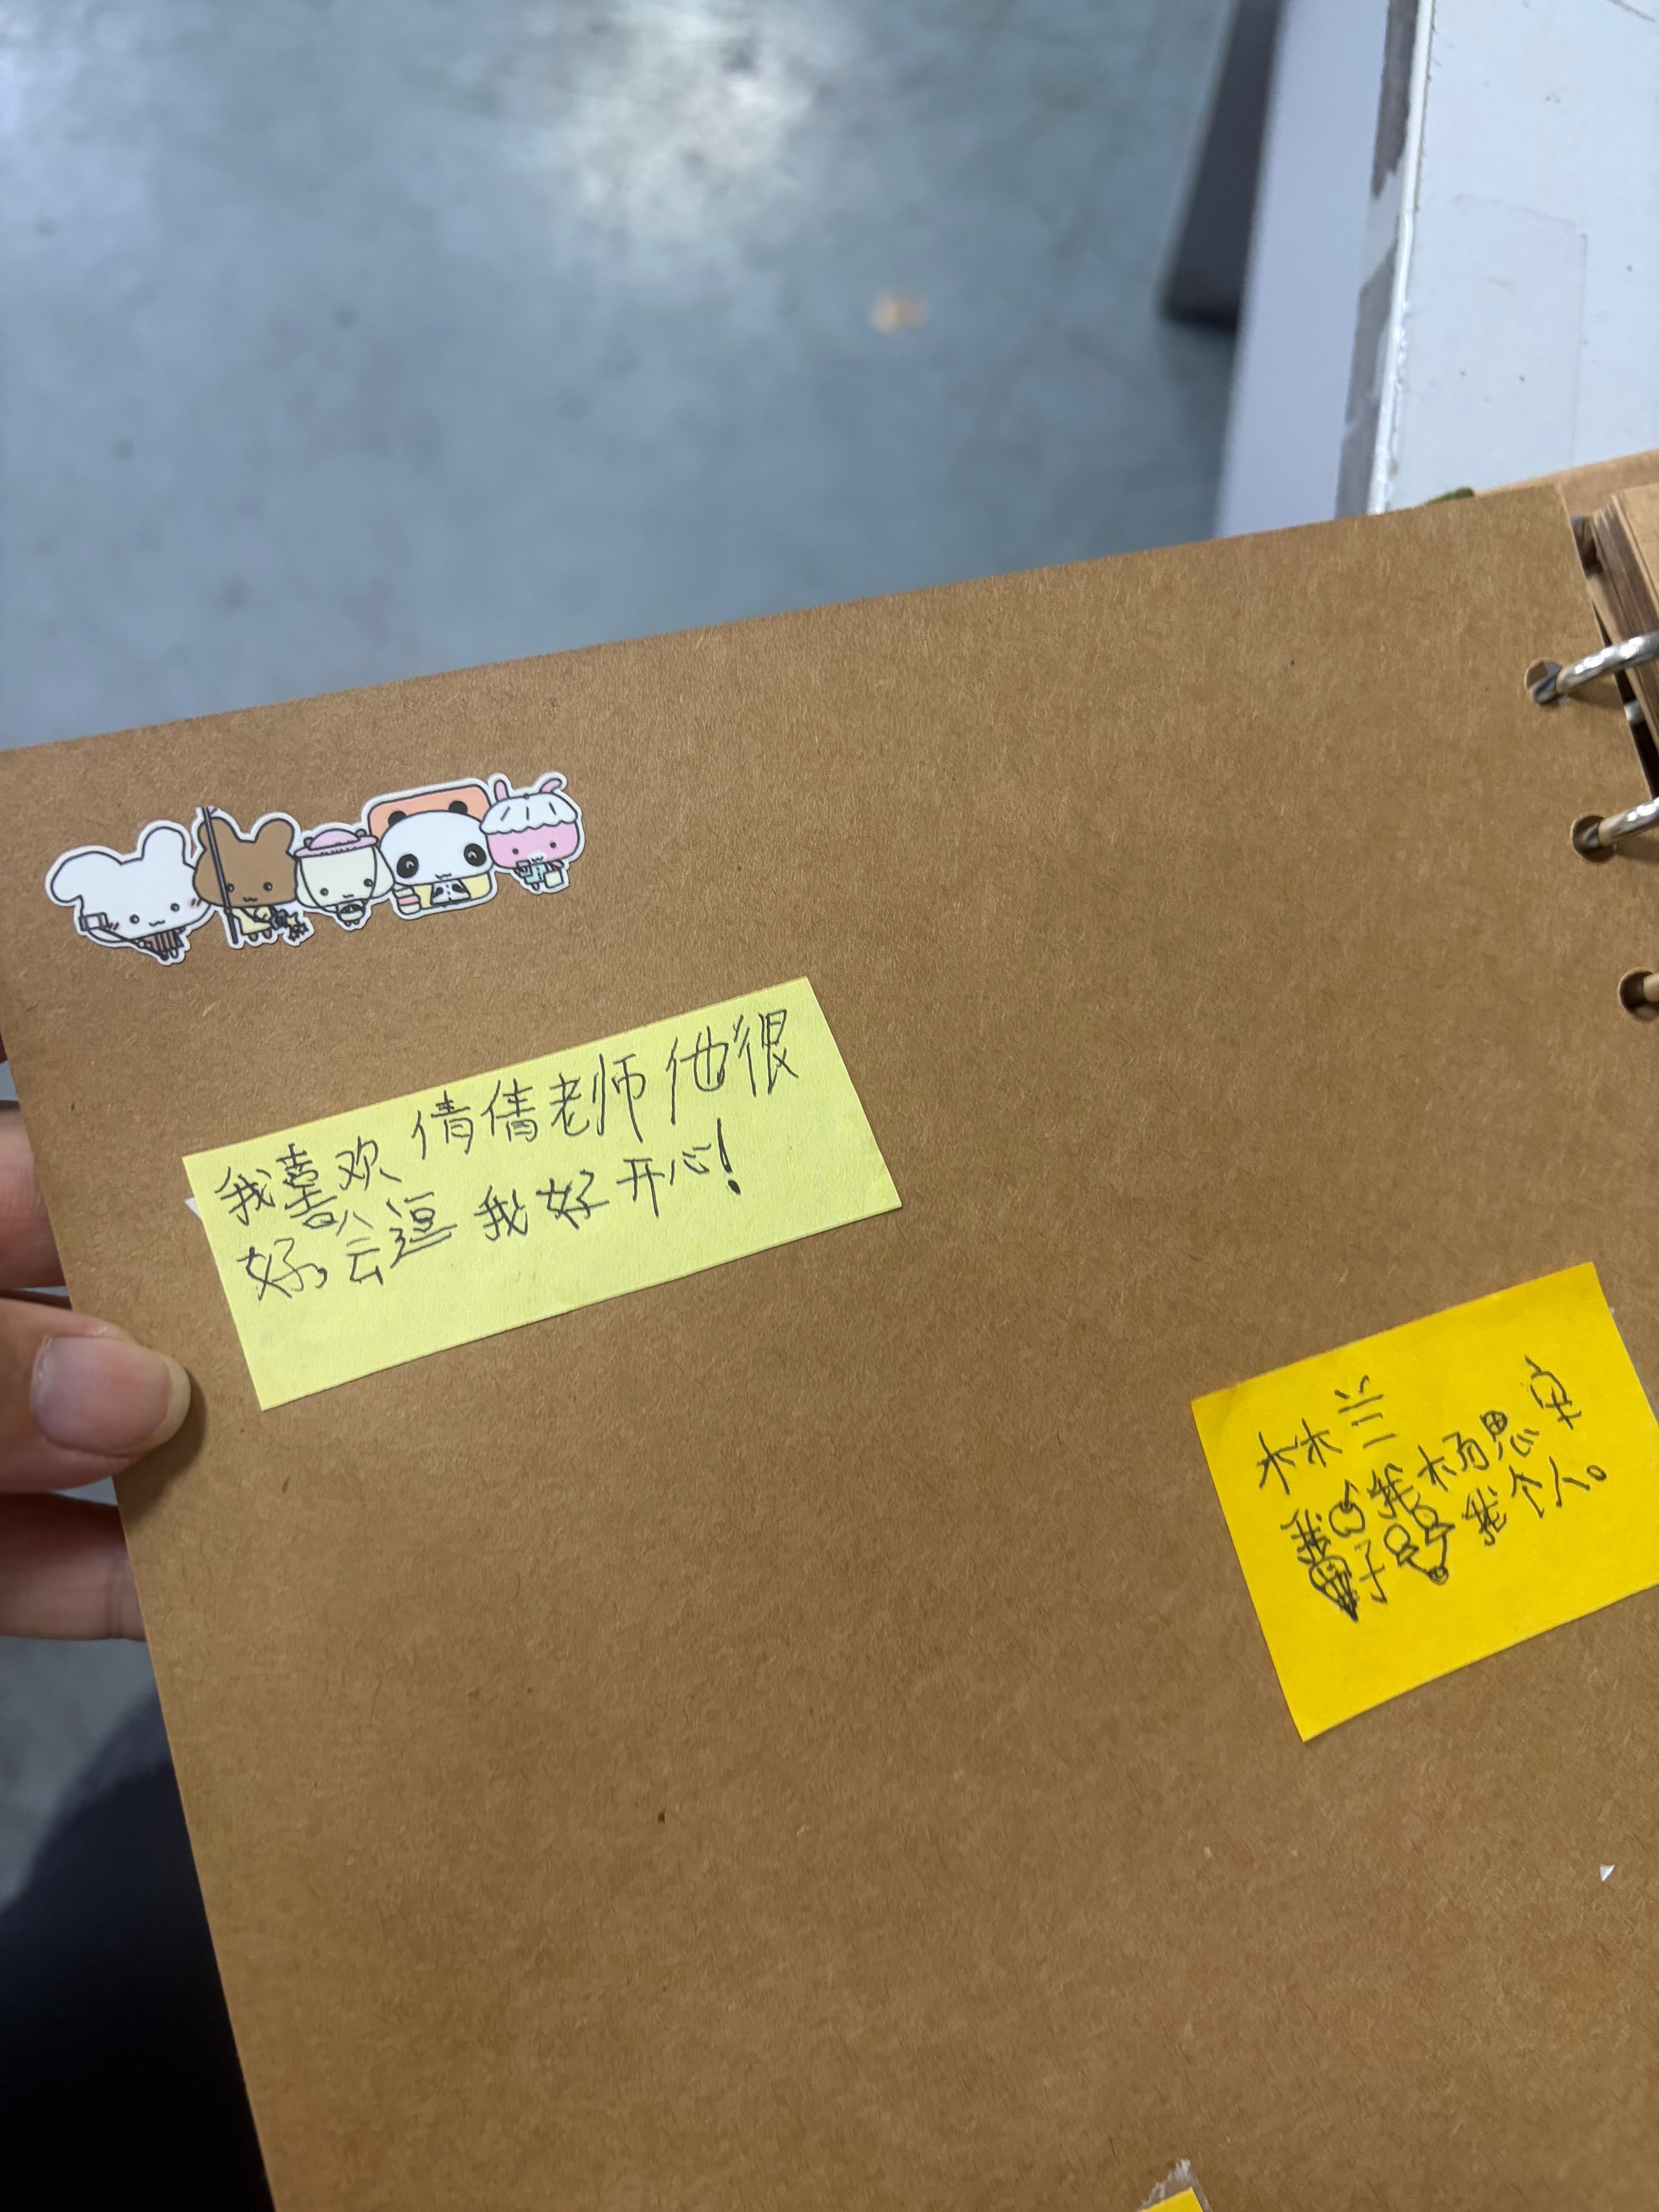 我喜欢 倩倩老师他很
好。会逗 我好开心！
林兰
我 我杨思
子 我个人。